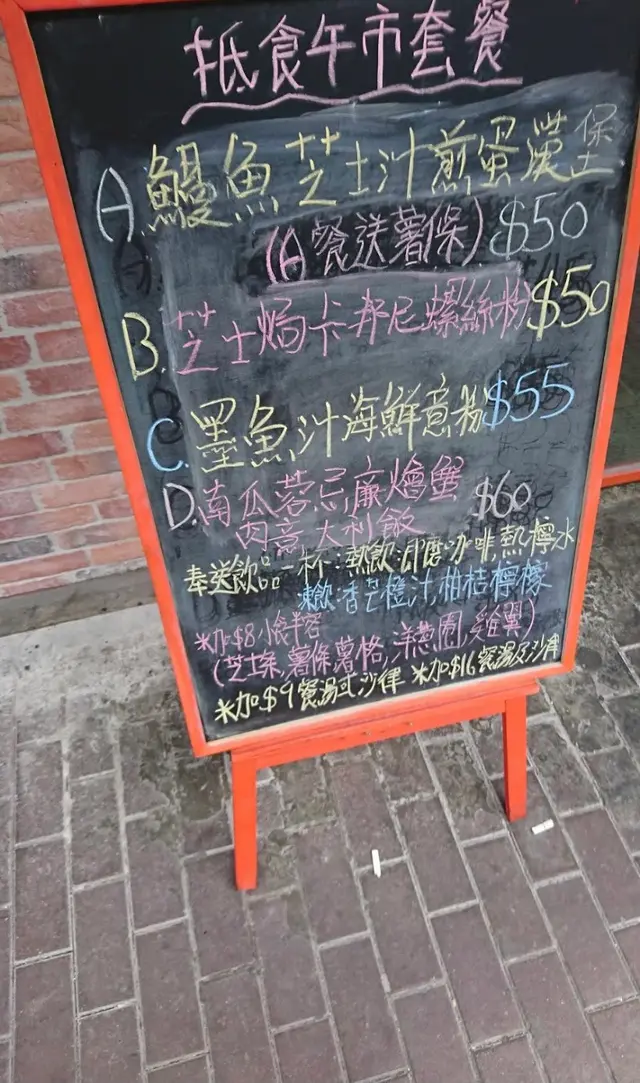 抵食午市套餐
A.鰻魚芝士汁煎蛋漢堡
(A餐送薯條) $50
B.芝士焗卡邦尼螺絲粉$50
C.墨魚汁海鮮意粉$55
D.南瓜蓉忌廉燴蟹 $60
肉意大利飯
奉送飲品一杯:熱飲:即磨咖啡,熱檸水
凍飲:香芒橙汁,柑桔檸檬
*加$8小食半客
(芝士条,薯條,薯格,洋葱圈,雞翼)
*加$9餐湯或沙律 *加$16餐湯及沙律